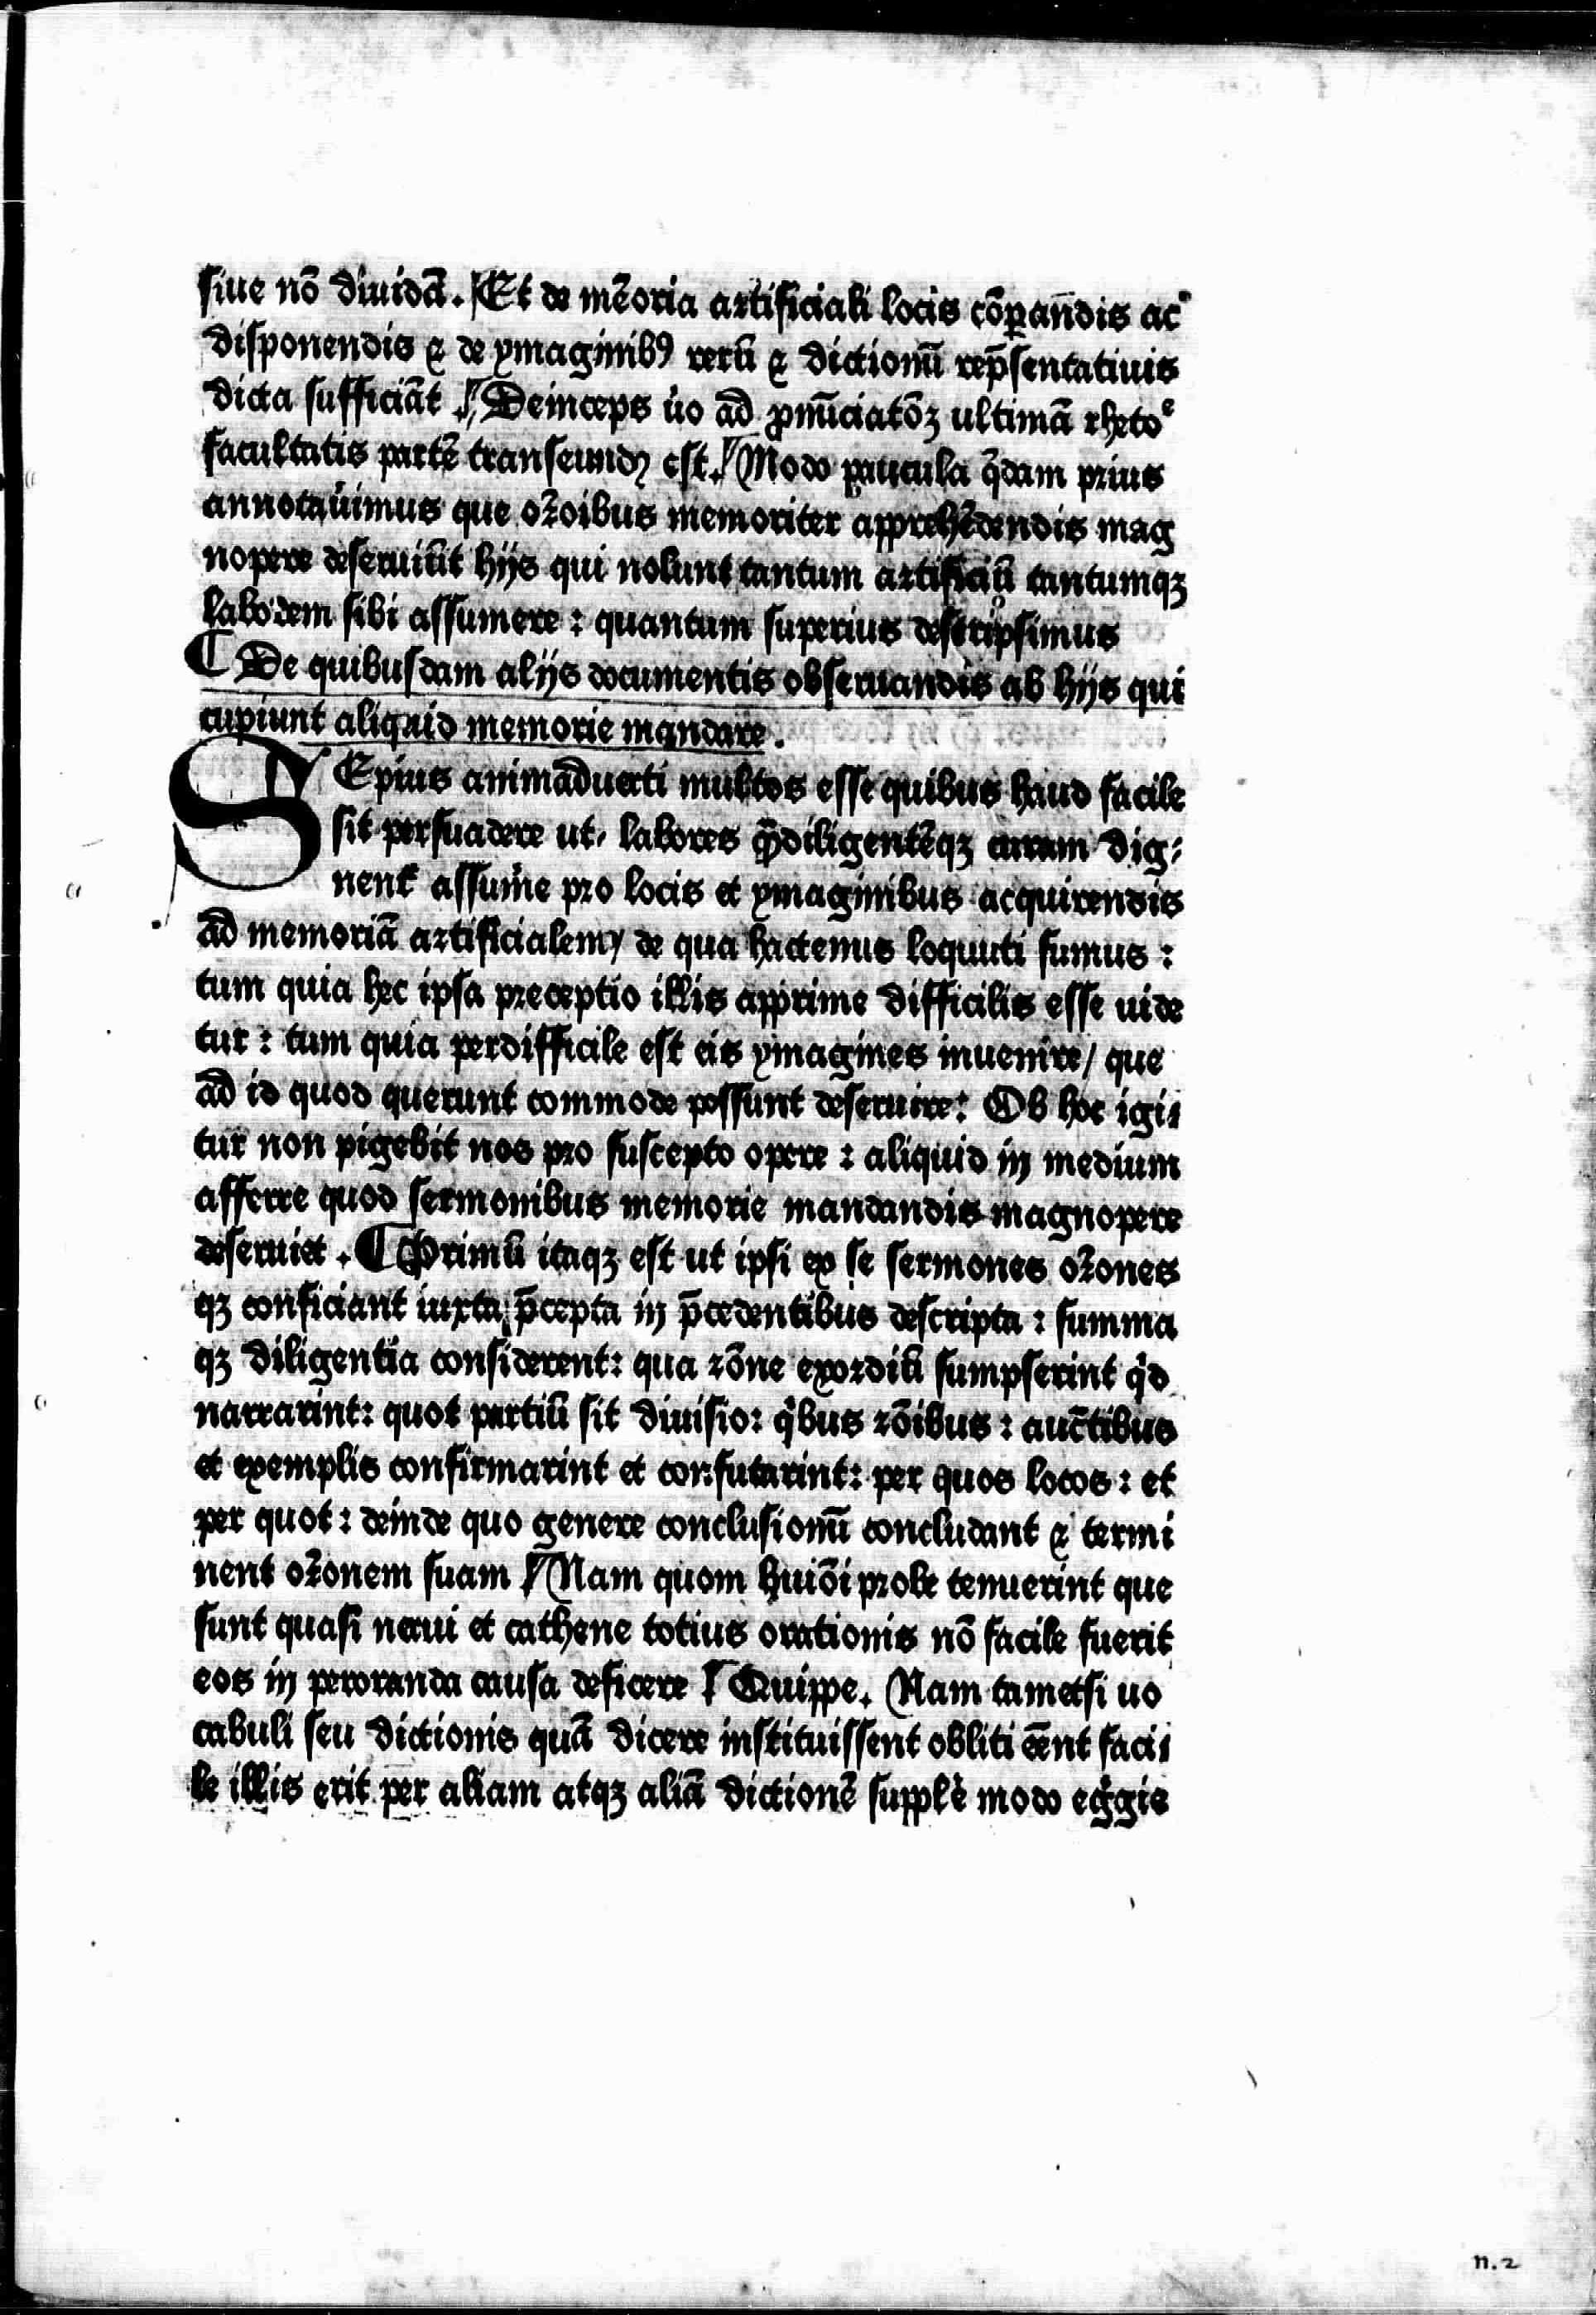 siue nō diuidā. Et de mēoria artificiali locis cōꝑan̄dis ac
disponendis ⁊ de ymaginibꝰ rerū ⁊ dictionū rep̄sentatiuis
dicta sufficiāt Deinceps u̓o ad ꝓnūciatōꝫ ultimā rhetoͤ
facultatis partē transeundꝫ est. Modo paucula q̄dam prius
annotauimus que or̄oibus memoriter apprehēdendis mag
nopere deseruiūt hijs qui nolunt tantum artificiū tantumqꝫ
laborem sibi assumere : quantum superius descripsimus
¶ De quibusdam alijs documentis obseruandis ab hijs qui
cupiunt aliquid memorie mandare .
SEpius animaduerti multos esse quibus haud facile
sit persuadere ut labores ꝙ̄diligentēqꝫ curam dig⸗
nent᷑ assum̓e pro locis et ymaginibus acquirendis
ad memoriā artificialem/ de qua hactenus loquuti sumus :
tum quia hec ipsa preceptio illis apprime difficilis esse uide
tur : tum quia perdifficile est eis ymagines inuenire/ que
ad id quod querunt commode possunt deseruire: Ob hoc igi⸗
tur non pigebit nos pro suscepto opere : aliquid in medium
afferre quod sermonibus memorie mandandis magnopere
deseruiet . ¶ Primū itaqꝫ est ut ipsi ex se sermones or̄ones
qꝫ conficiant iuxta p̄cepta in p̄cedentibus descripta : summa
qꝫ diligentia considerent: qua rōne exordiū sumpserint qͥd
narrarint: quot partiū sit diuisio: qͥbus rōibus : auct̄ibus
et exemplis confirmarint et confutarint: per quos locos : et
per quot : deinde quo genere conclusionū concludant ⁊ termi
nent or̄onem suam Nam quom huiōi probe tenuerint que
sunt quasi nerui et cathene totius orationis nō facile fuerit
eos in peroranda causa deficere Quippe. Nam tametsi uo
cabuli seu dictionis quā dicere instituissent obliti eēnt faci⸗
le illis erit per aliam atqꝫ aliā dictionē supplē modo eg̓gie
n.2